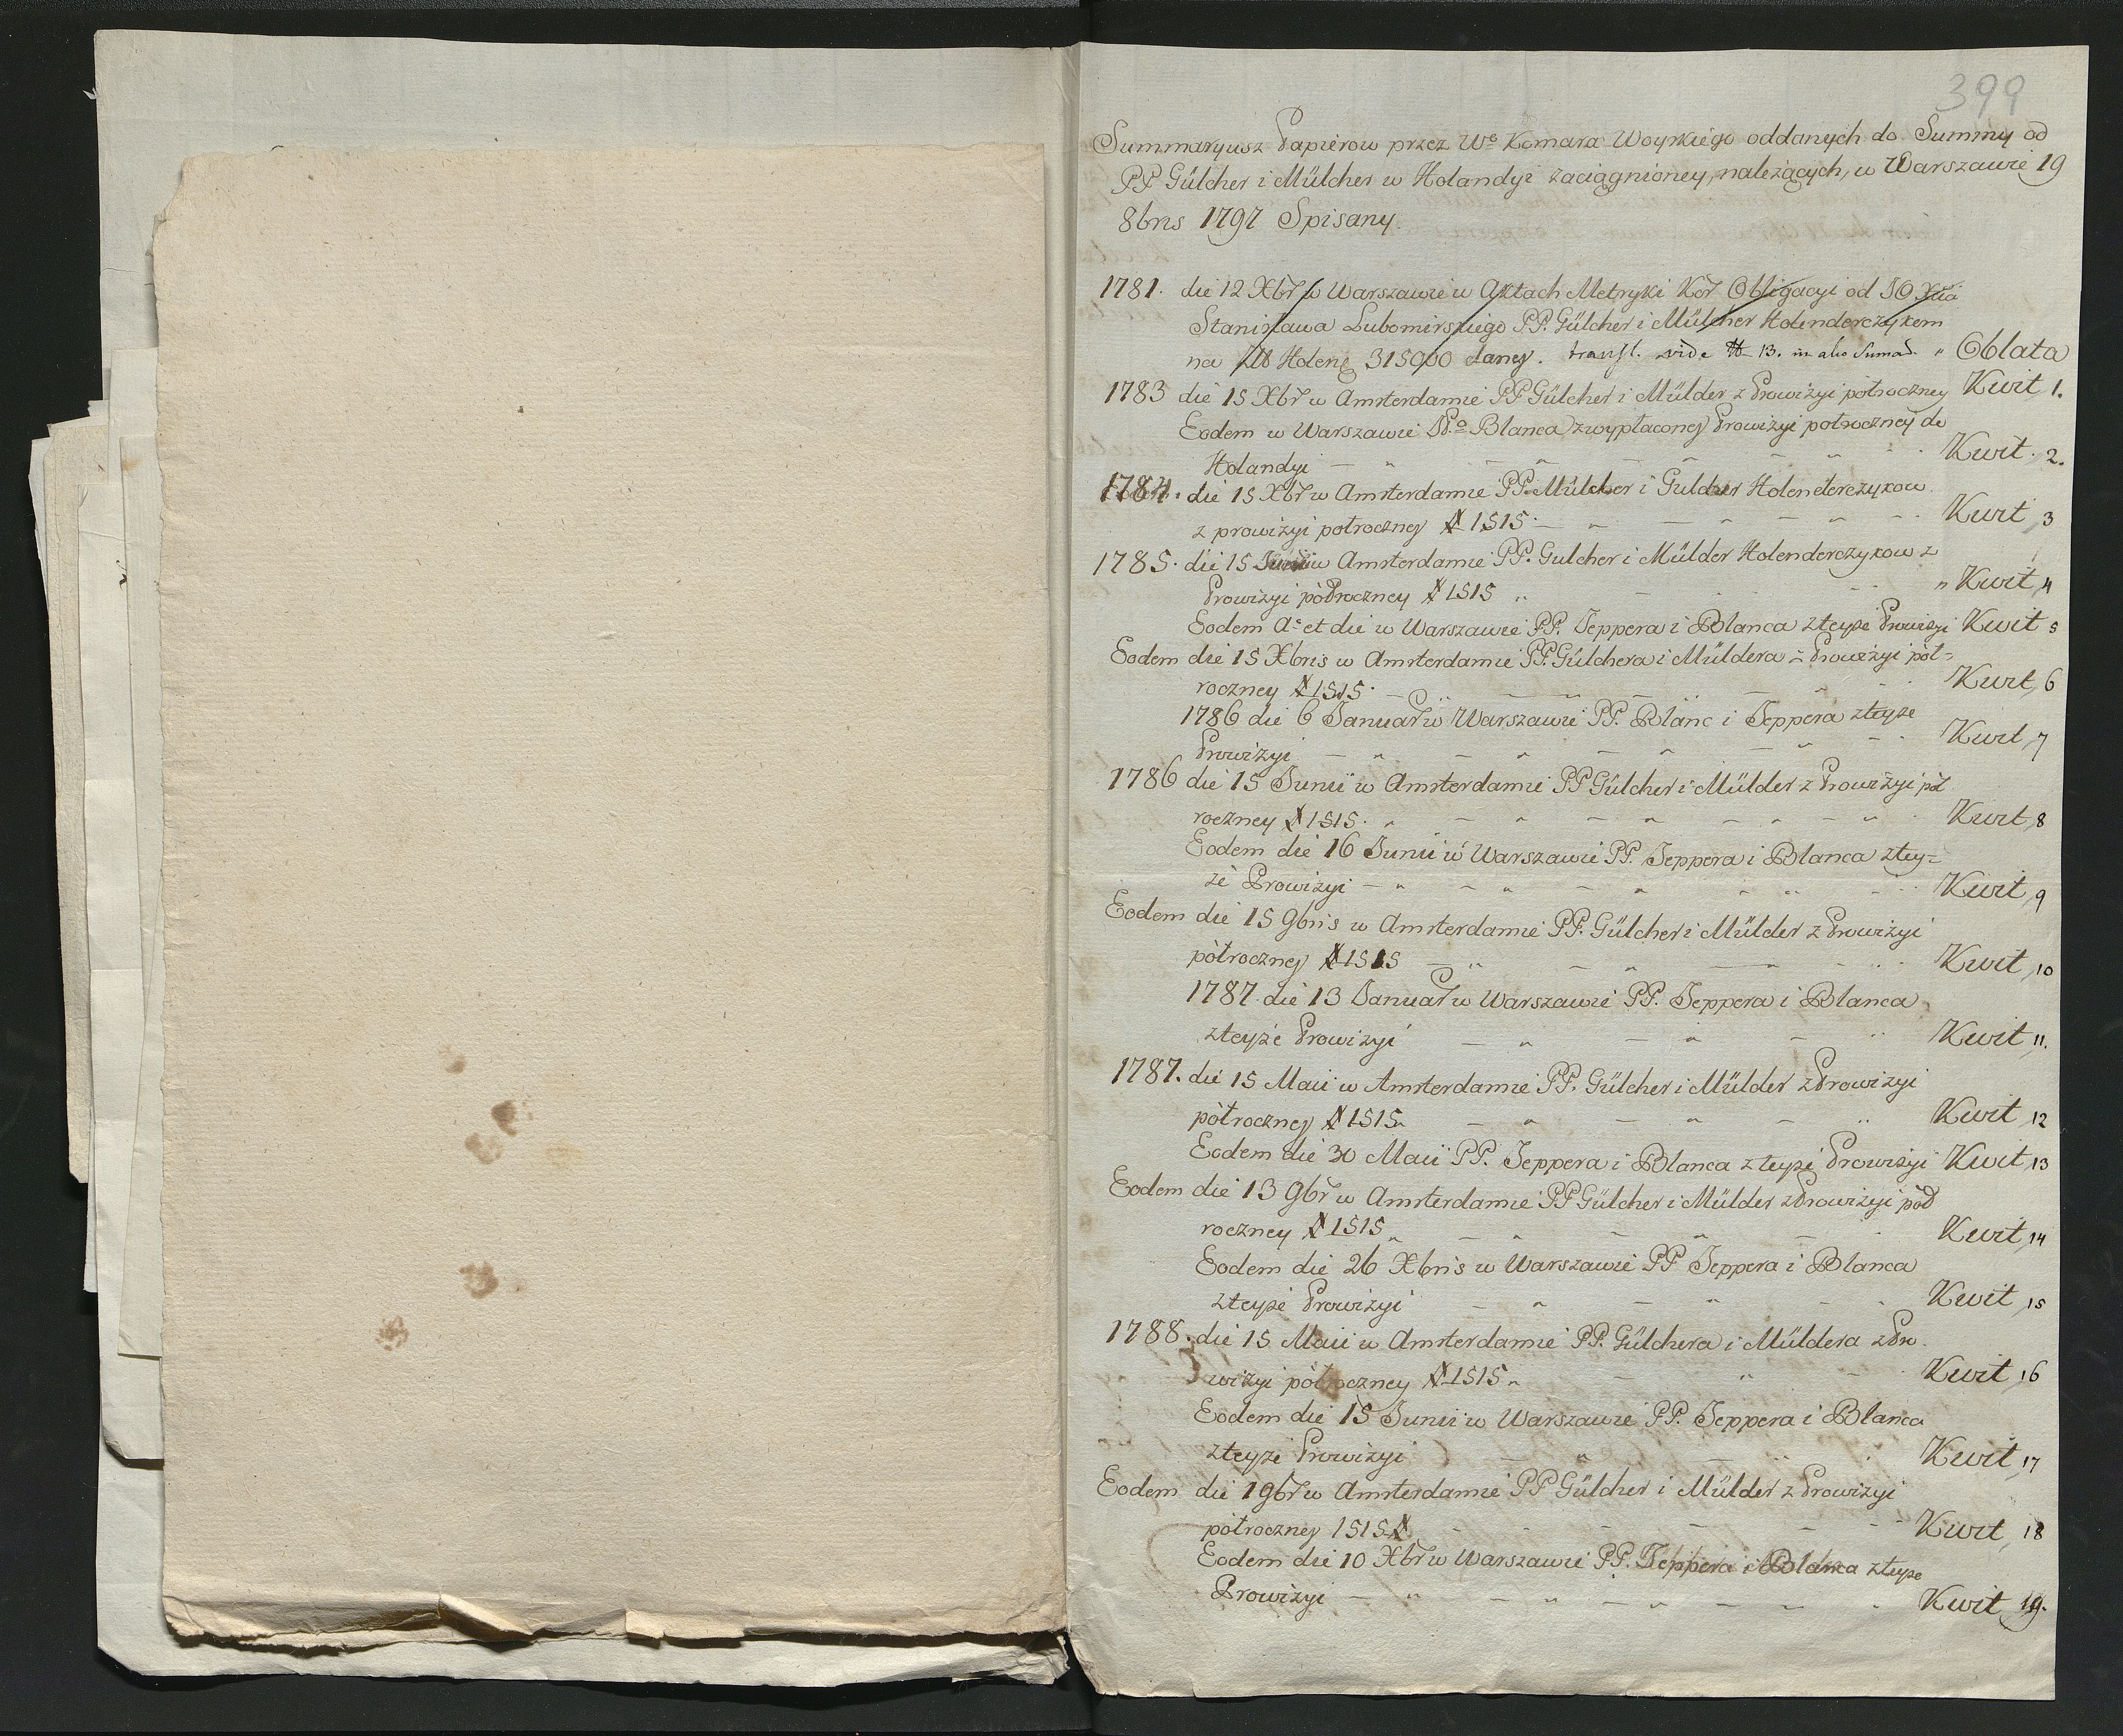 399
Summaryusz Papierow przez Wo Komara Woyskiego oddanych do Summy od
PP Gülcher i Mülcher w Holandyi zaciągnioney, należących, w Warszawie 19
8bris 1797 Spisany.
1781. die 12 Xbr w Warszawie w Aktach Metryki Kor Obligacyi od JO Xcia
Stanisława Lubomirskiego PP. Gülcher i Mülcher Holenderczykom
na Holen 315000 daney. transl. vide 13. in alio Sumar. " Oblata
1783 die 15 Xbr w Amsterdamie PP Gülcher i Mülder z Prowizyi połroczney Kwit 1.
Eodem w Warszawie Blanca zwypłaconey Prowizyi połroczney do
Holandyi Kwit 2.
1784. die 15 Xbr w Amsterdamie PP. Mülcher i Gulder Holenderczykow
z prowizyi połroczney # 1515 Kwit 3
1785. die 15 Junii w Amsterdamie PP. Gulcher i Mülder Holenderczykow z
Prowizyi połroczney # 1515 " Kwit 4
Eodem Ao et die w Warszawie PP. Teppera i Blanca zteyże Prowizyi Kwit 5
Eodem die 15 Xbris w Amsterdamie PP. Gülchera i Müldera z Prowizyi poł=
roczney # 1515 Kwit 6
1786 die 6 Januar w Warszawie PP. Blanc i Teppera zteyże
Prowizyi Kwit 7
1786 die 15 Junii w Amsterdamie PP Gülcher i Mülder z Prowizyi poł
roczney # 1515 Kwit 8
Eodem die 16 Junii w Warszawie PP. Teppera i Blanca ztey=
że Prowizyi Kwit 9
Eodem die 15 9bris w Amsterdamie PP. Gülcher i Mülder z Prowizyi
połroczney # 1515 Kwit 10
1787 die 13 Januar w Warszawie PP. Teppera i Blanca
zteyże Prowizyi Kwit 11.
1787. die 15 Maii w Amsterdamie PP. Gülcher i Mülder z Prowizyi
połroczney # 1515 Kwit 12
Eodem die 30 Maii PP. Teppera i Blanca zteyże Prowizyi Kwit 13
Eodem die 13 9br w Amsterdamie PP Gülcher i Mülder z Prowizyi poł
roczney # 1515 Kwit 14
Eodem die 26 Xbris w Warszawie PP Teppera i Blanca
zteyże Prowizyi Kwit 15
1788. die 15 Maii w Amsterdamie PP. Gülchera i Müldera z Pro
wizyi połroczney # 1515 Kwit 16
Eodem die 15 Junii w Warszawie PP. Teppera i Blanca
zteyże Prowizyi Kwit 17
Eodem die 1 9br w Amsterdamie PP Gülcher i Mülder z Prowizyi
połroczney 1515 # Kwit 18
Eodem die 10 Xbr w Warszawie PP. Teppera i Blanca zteyże
Prowizyi Kwit 19.